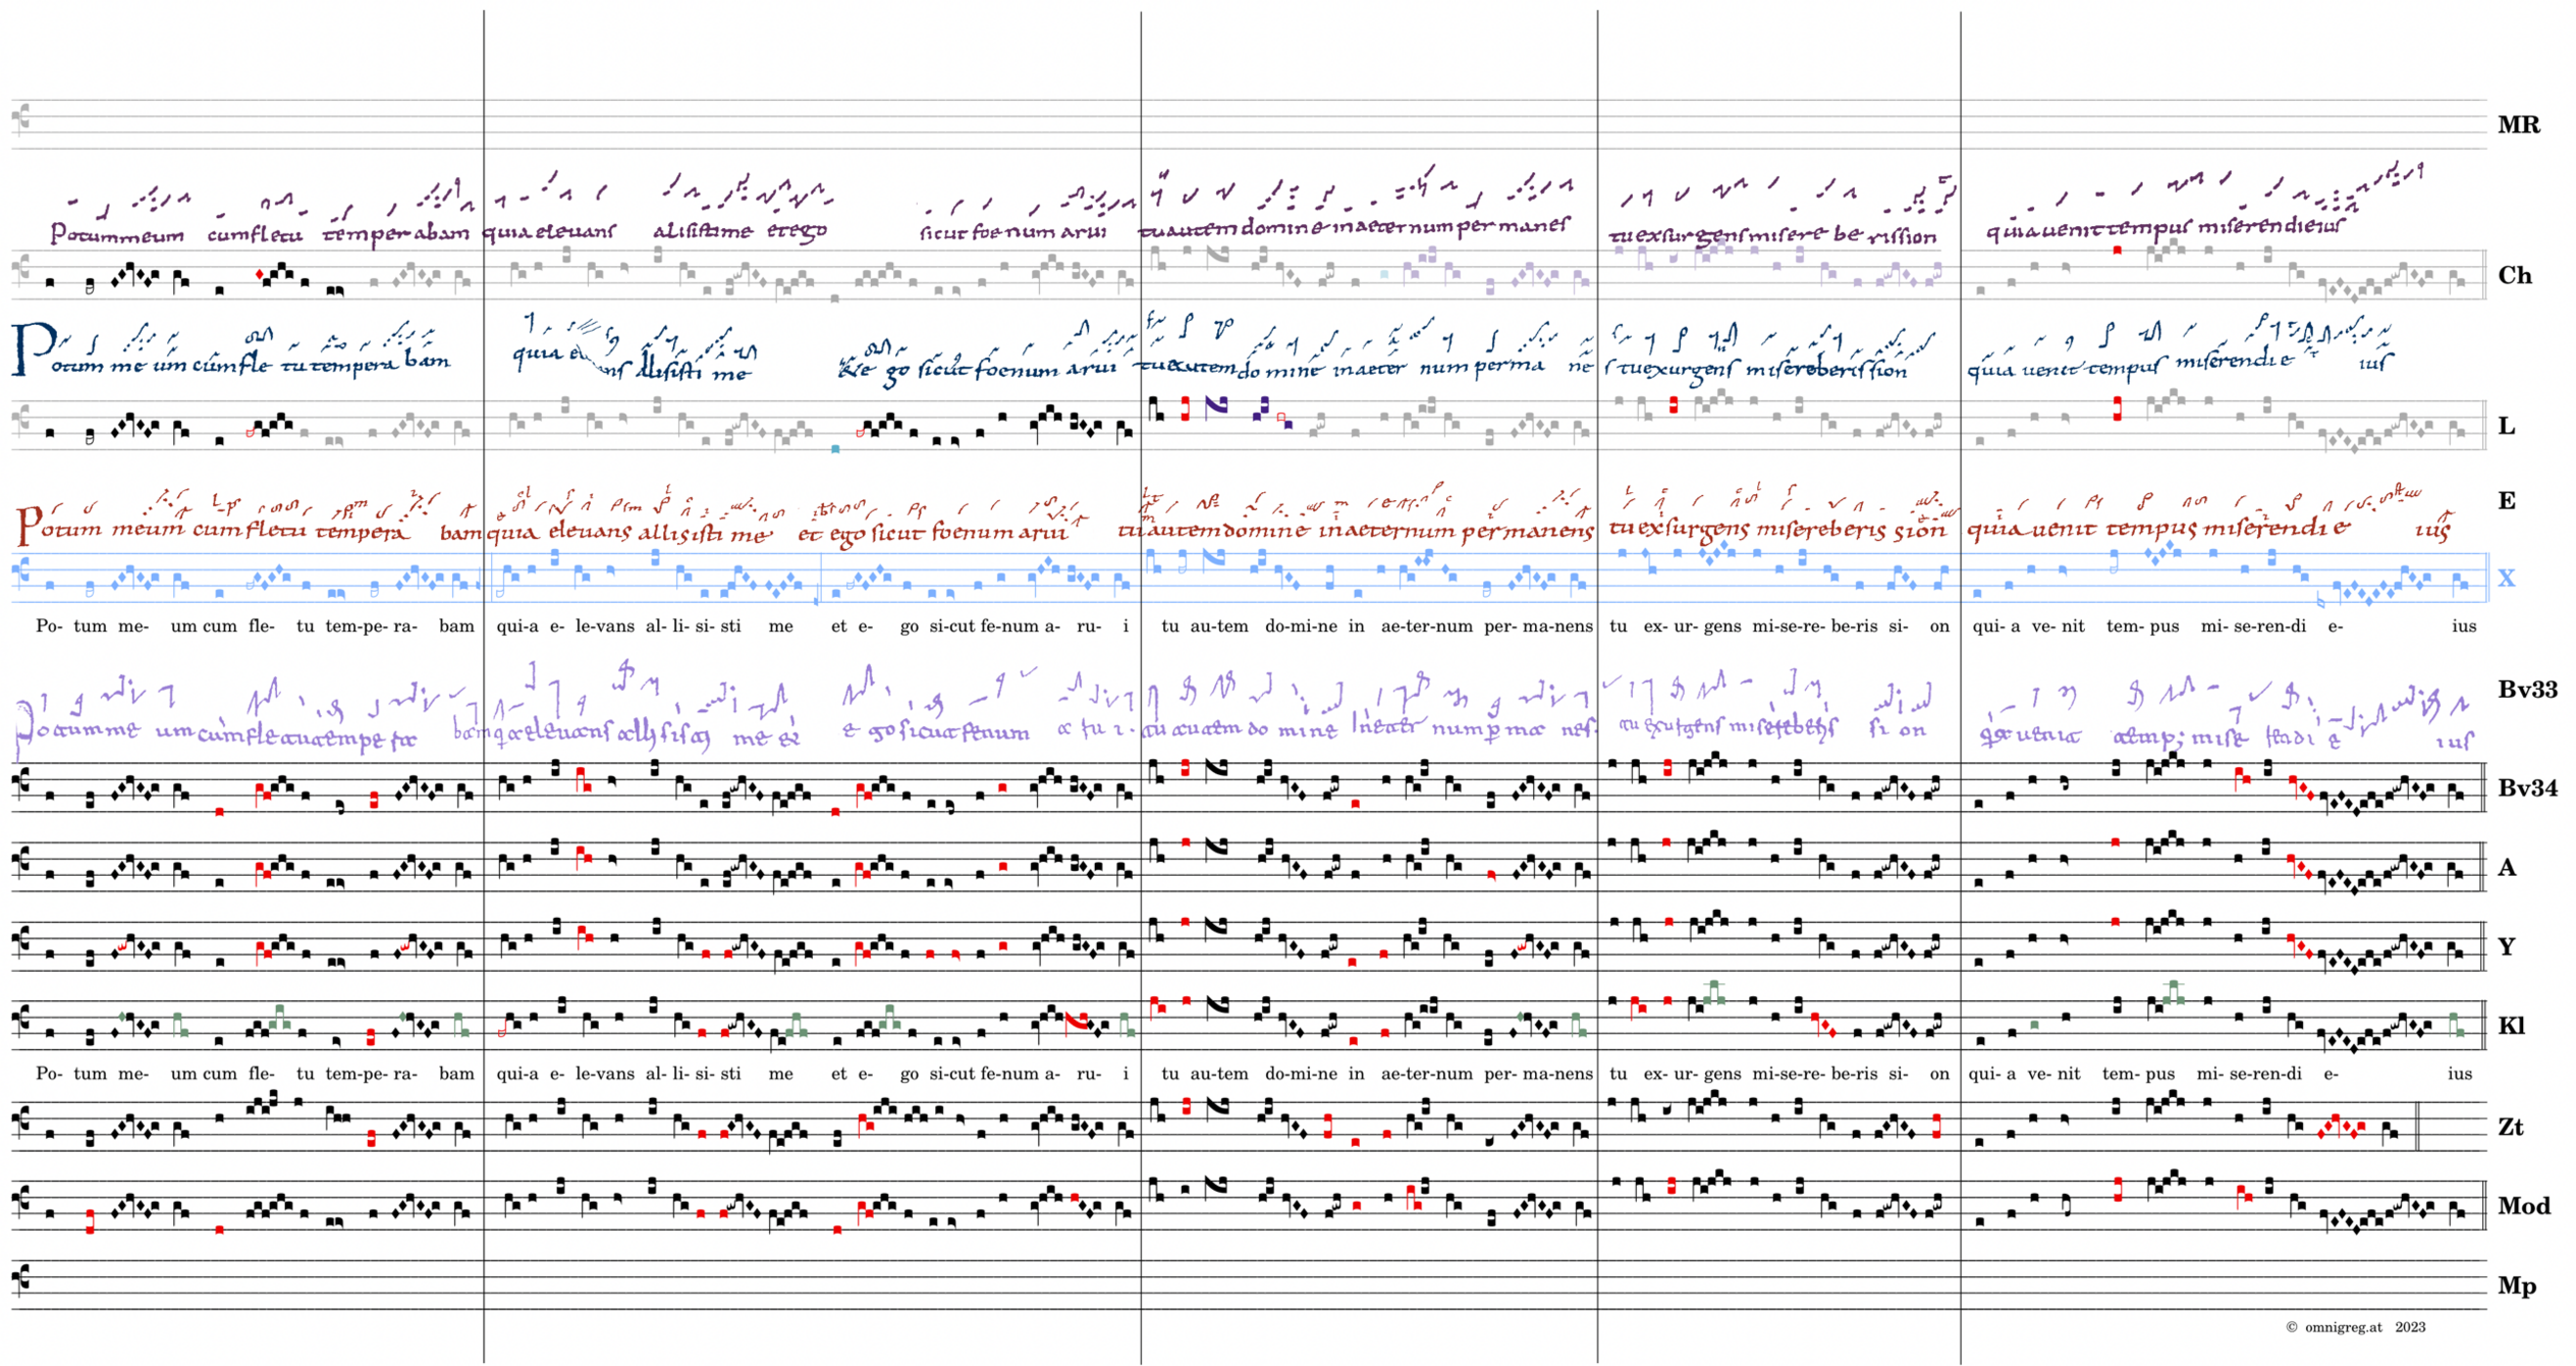 MR
Potummeum cumfletu temperabam quia elevans alisistime etego sicut foenum arui tuautem domine inaeternumpermanes tuexsurgensmisere be rission quiauenittempus miserendieius
Ch
Potum me um cum fle tu tempera bam quia ns allisisti me go sicut foenum arui tuautem do mine inaeter num perma ne s tuexurgens misereberission quia uenit tempus miserendi e ius
L
Potum meum cum fletu tempera bam quia elevans allisisti me et ego sicut foenum arui tu autem domine inaeternum permanens tuexsurgens misereberis sion quia uenit tempus miserendi e ius
E
X
Po- tum me- um cum fle- tu tem-pe- ra- bam qui-a e- le-vans al- li- si- sti me et e- go si-cut fe-num a- ru- i tu au-tem do-mi-ne in ae-ter-num per- ma-nens tu ex- ur- gens mi-se-re- be-ris si- on qui- a ve- nit tem- pus mi- se-ren-di e- ius
Bv33
Bv34
A
Y
Kl
Po- tum me- um cum fle- tu tem-pe- ra- bam qui-a e- le-vans al- li- si- sti me et e- go si-cut fe-num a- ru- i tu au-tem do-mi-ne in ae-ter-num per- ma-nens tu ex- ur- gens mi-se-re- be-ris si- on qui- a ve- nit tem- pus mi- se-ren-di e- ius
Zt
Mod
Mp
© omnigreg.at 2023